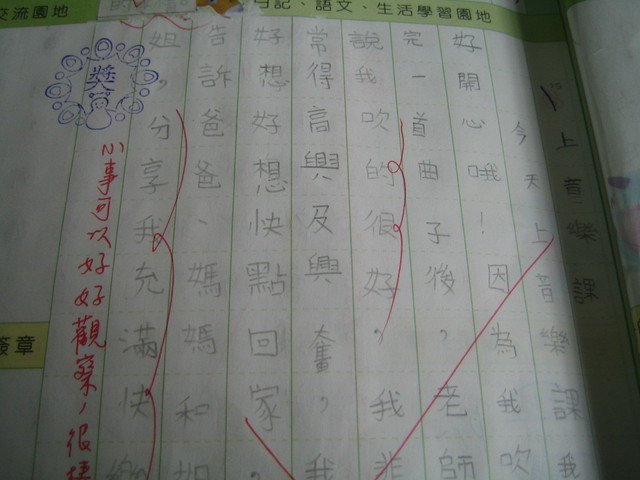 交流園地
日記、語文、生活學習園地
上音樂課
今天上音樂課我
好開心哦！因為我吹
完一首曲子後，老師
說我吹的很好，我非
常得高興及興奮，我
好想好想快點回家，
告訴爸爸、媽媽和姐
姐，分享我充滿快樂
獎
小事可以好好觀察，很棒
簽章